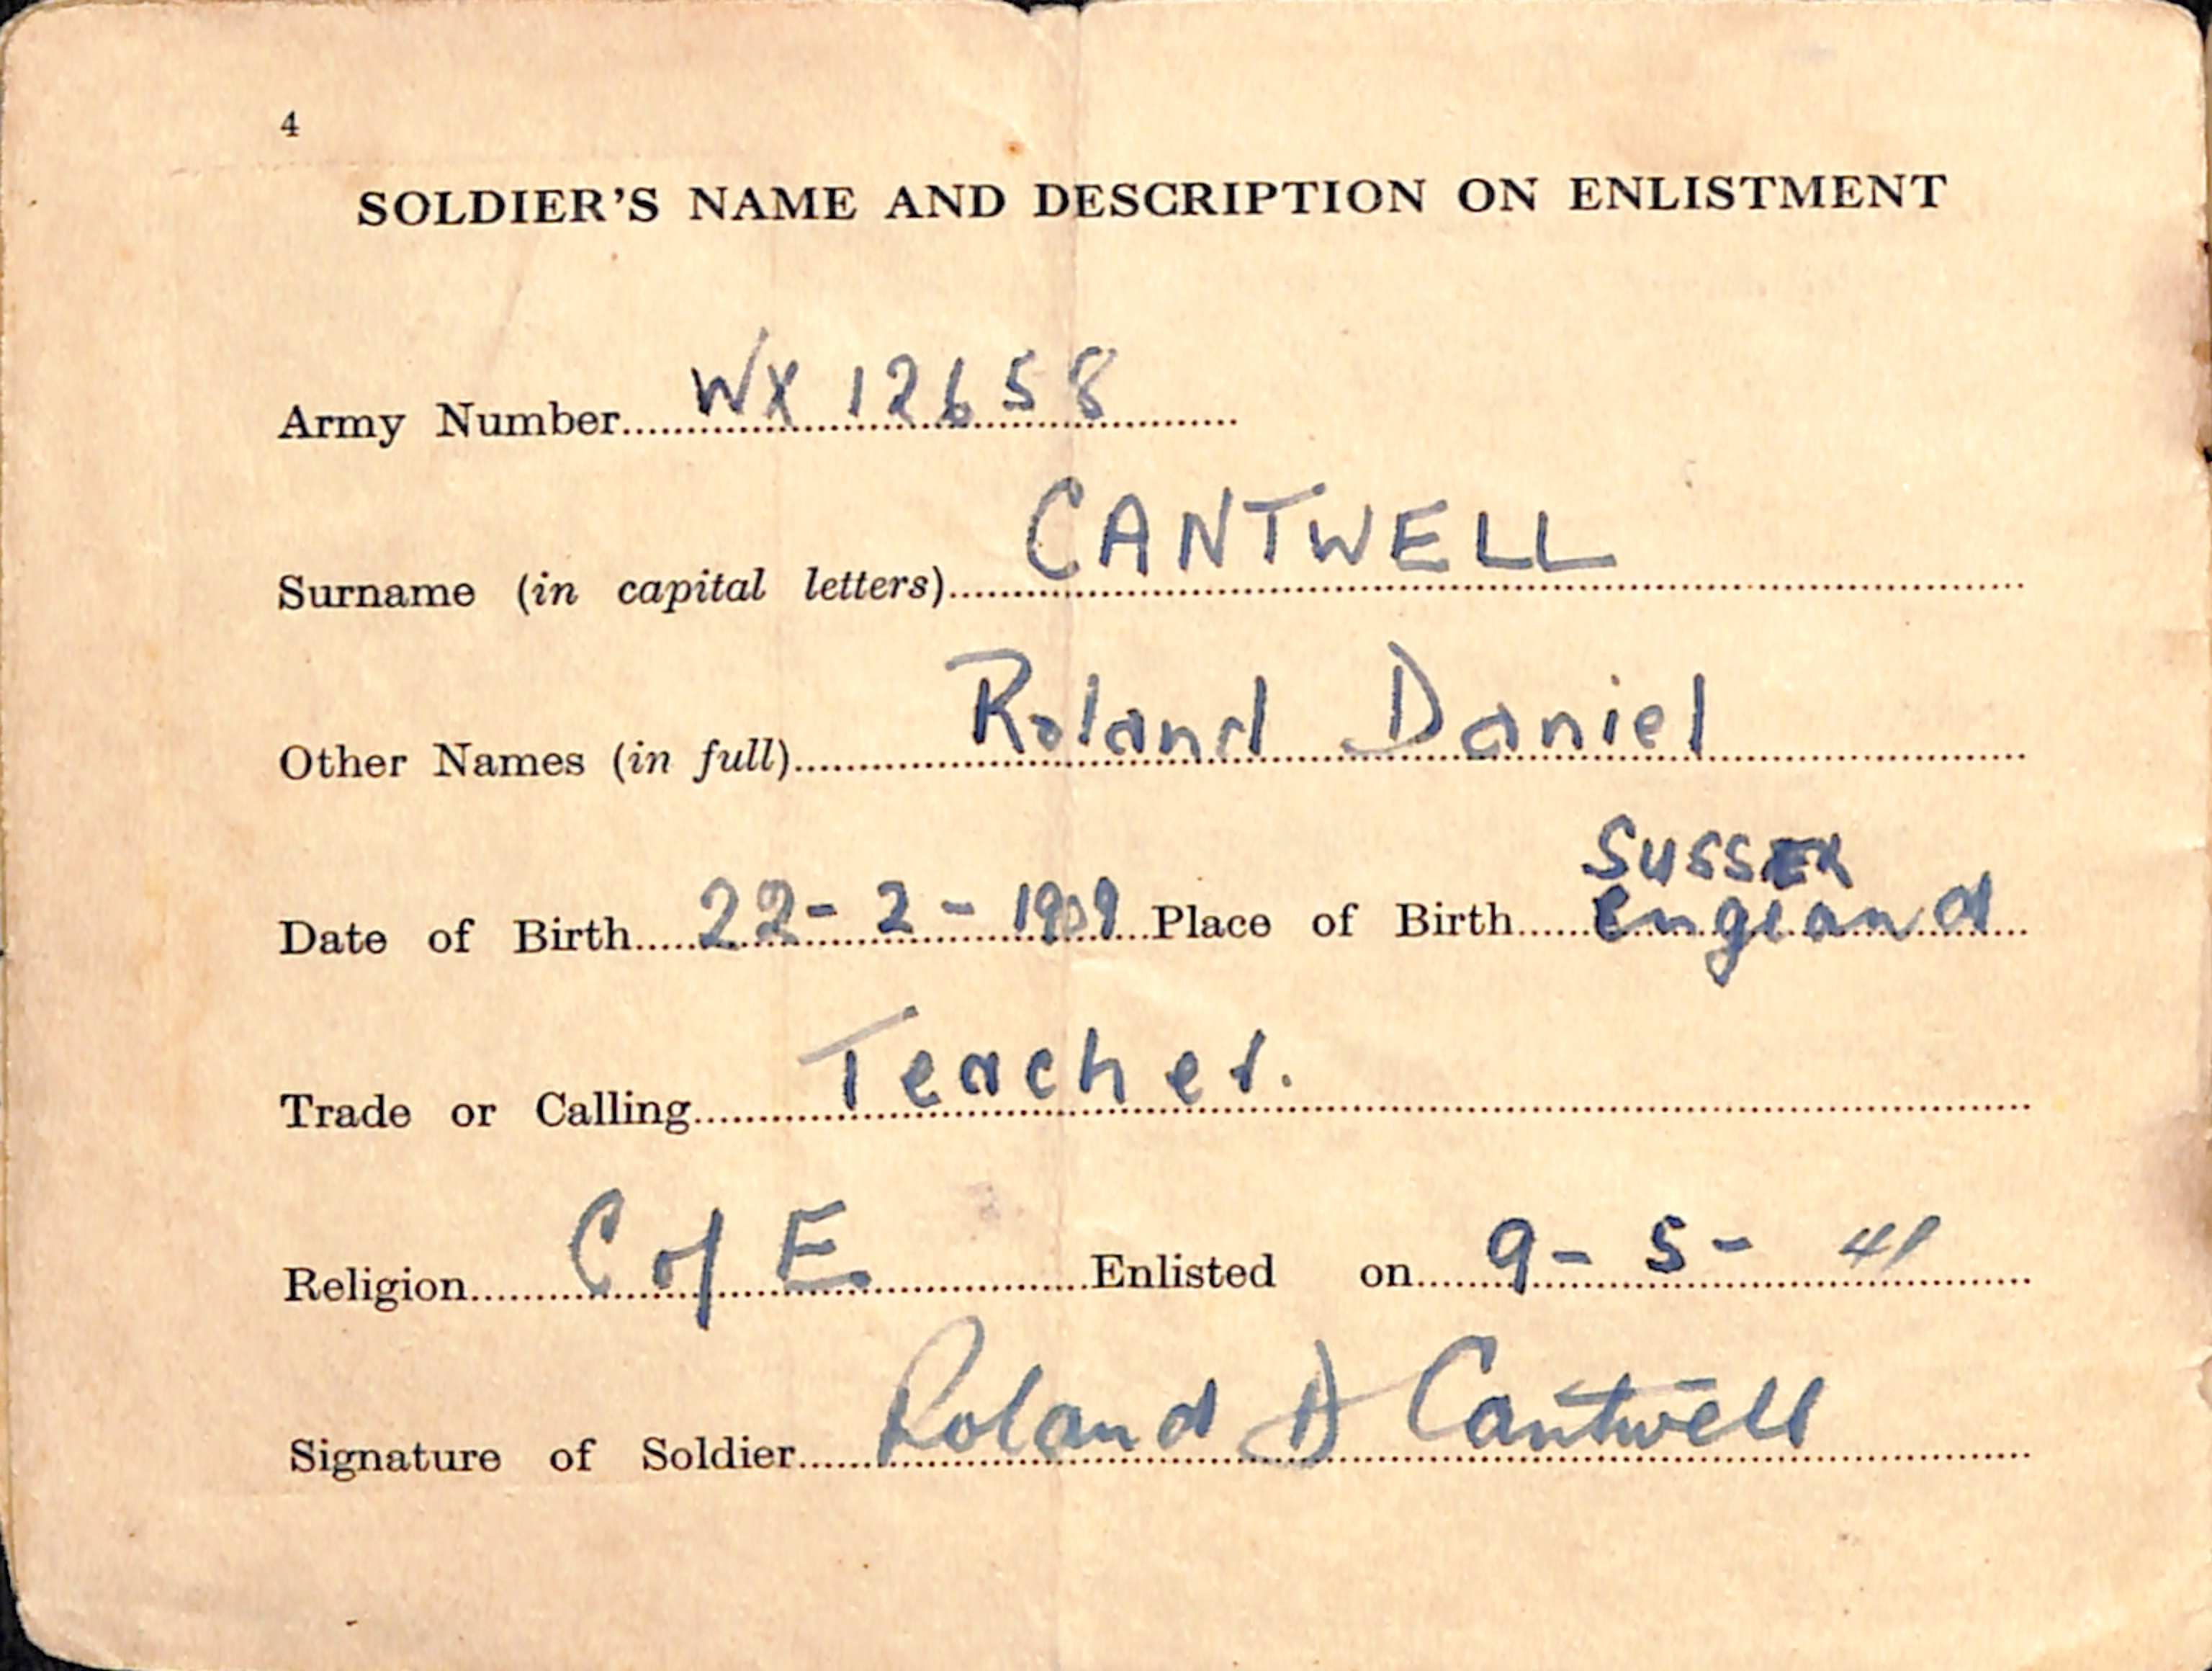 4
SOLDIER'S NAME AND DESCRIPTION ON ENLISTMENT
Army Number WX 12658
Surname (in capital letters) CANTWELL
Other Names (in full) Roland Daniel
Date of Birth 22-2-1909 Place of Birth SUSSEX England
Trade or Calling Teacher.
Religion C of E. Enlisted on 9-5-41
Signature of Soldier Roland D Cantwell